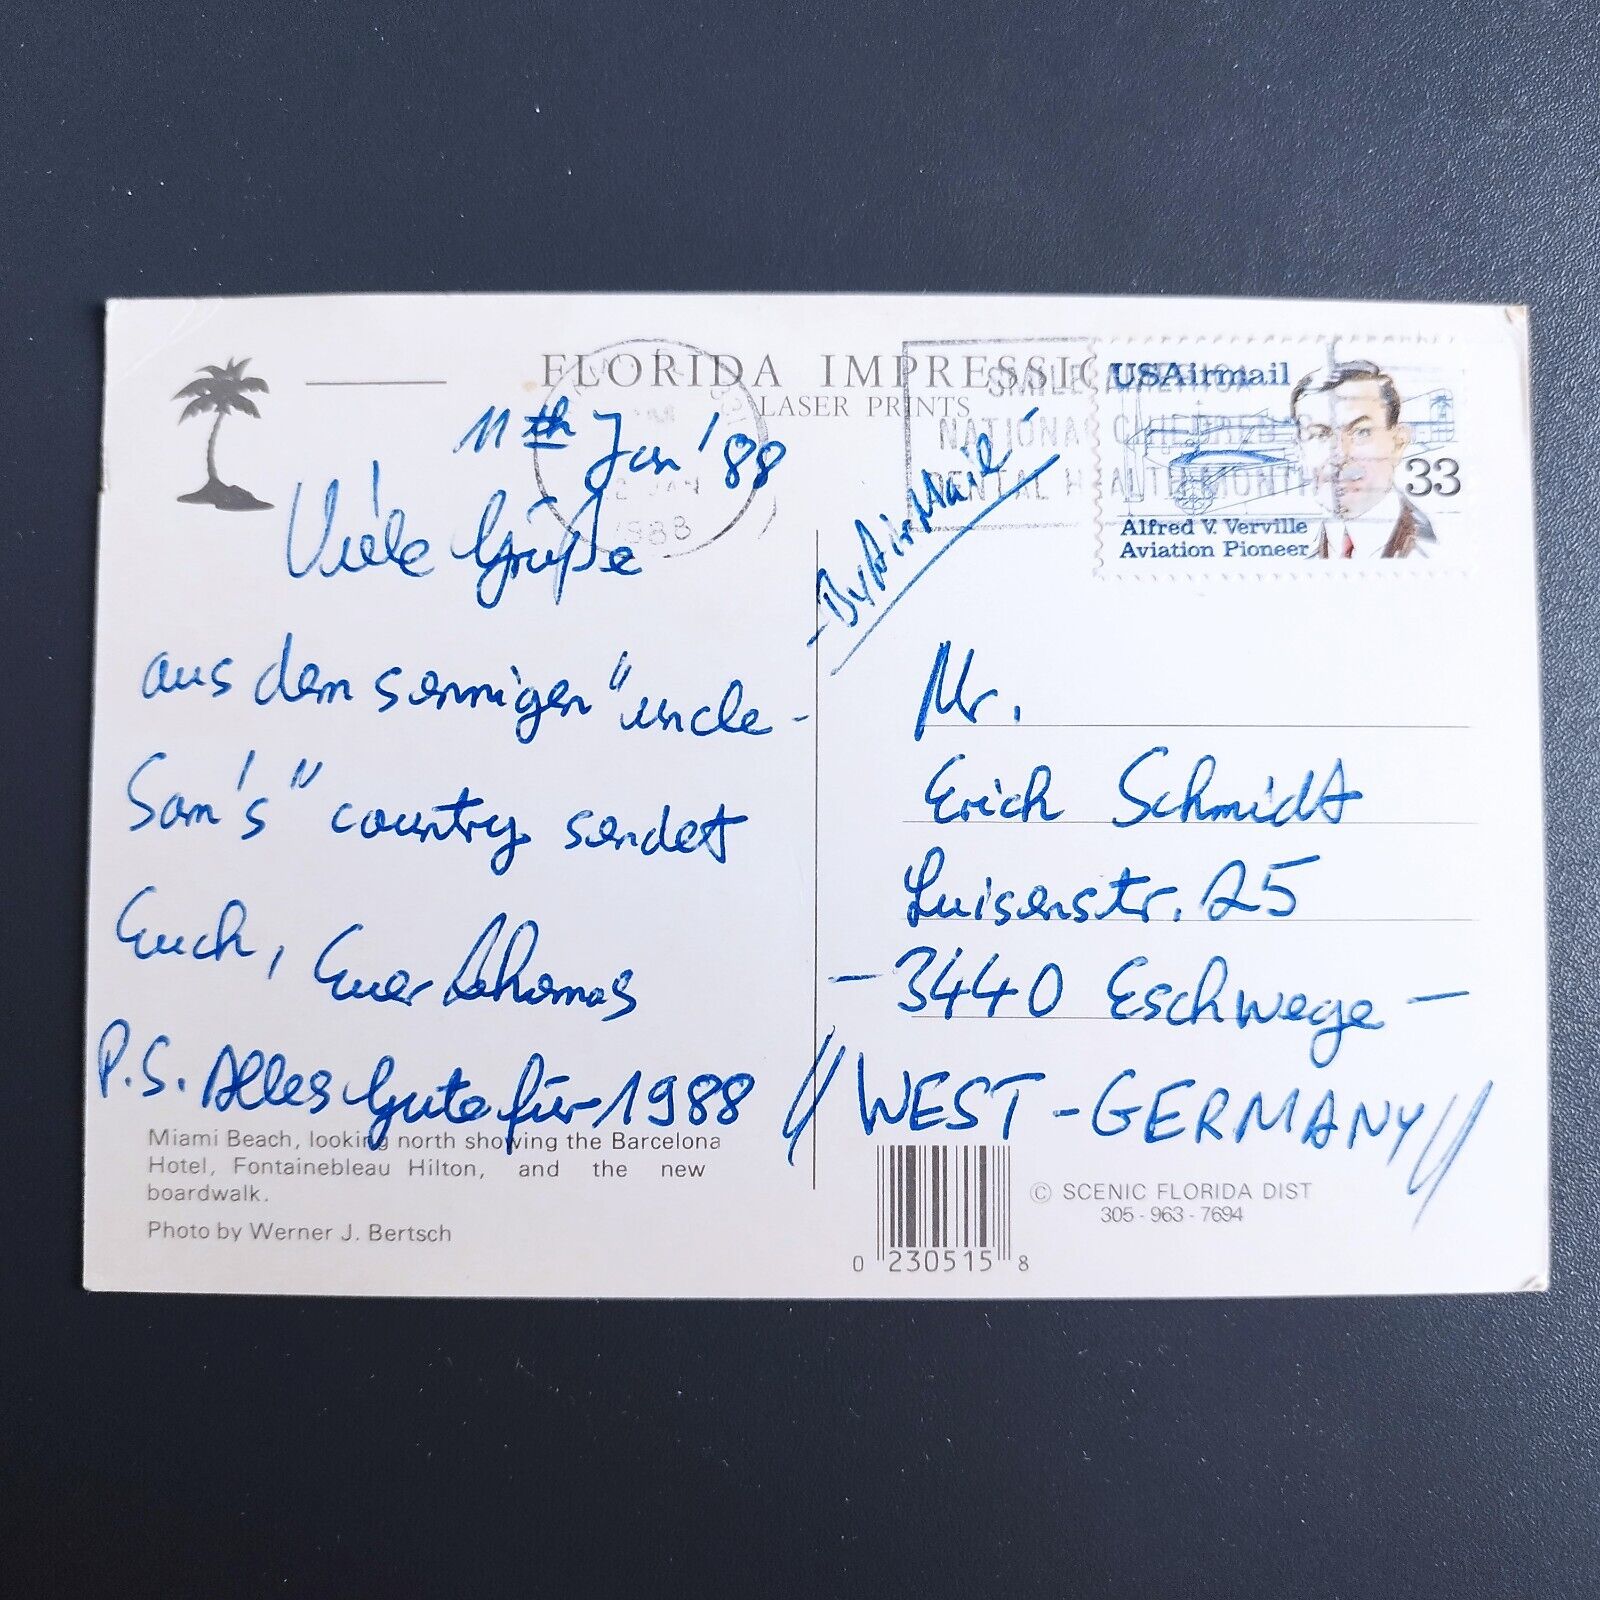 FLORIDA IMPRESSIO
LASER PRINTS
11th Jan '88
Viele Grüße
aus dem sonnigen "uncle-
Sam's" country sendet
Euch, Euer Thomas
P.S. Alles Gute für 1988
Miami Beach, looking north showing the Barcelona
Hotel, Fontainebleau Hilton, and the new
boardwalk.
Photo by Werner J. Bertsch
JAN
1988
SMILE AMERICA
NATIONAL CHILDREN'S
DENTAL HEALTH MONTH
USAirmail
33
Alfred V. Verville
Aviation Pioneer
- By Air Mail -
Mr.
Erich Schmidt
Luisenstr. 25
- 3440 Eschwege -
// WEST-GERMANY //
© SCENIC FLORIDA DIST
305-963-7694
0 230515 8